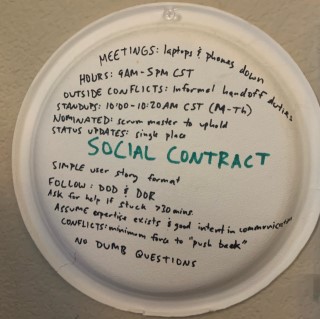 MEETINGS: laptops & phones down
HOURS: 9AM-5PM CST
OUTSIDE CONFLICTS: Informal handoff duties
STANDUPS: 10:00-10:20AM CST (M-Th)
NOMINATED: scrum master to uphold
STATUS UPDATES: single place
SOCIAL CONTRACT
SIMPLE user story format
FOLLOW: DOD & DOR
Ask for help if stuck >30 mins.
ASSUME expertise exists & good intent in communication
CONFLICTS: minimum force to "push back"
NO DUMB QUESTIONS